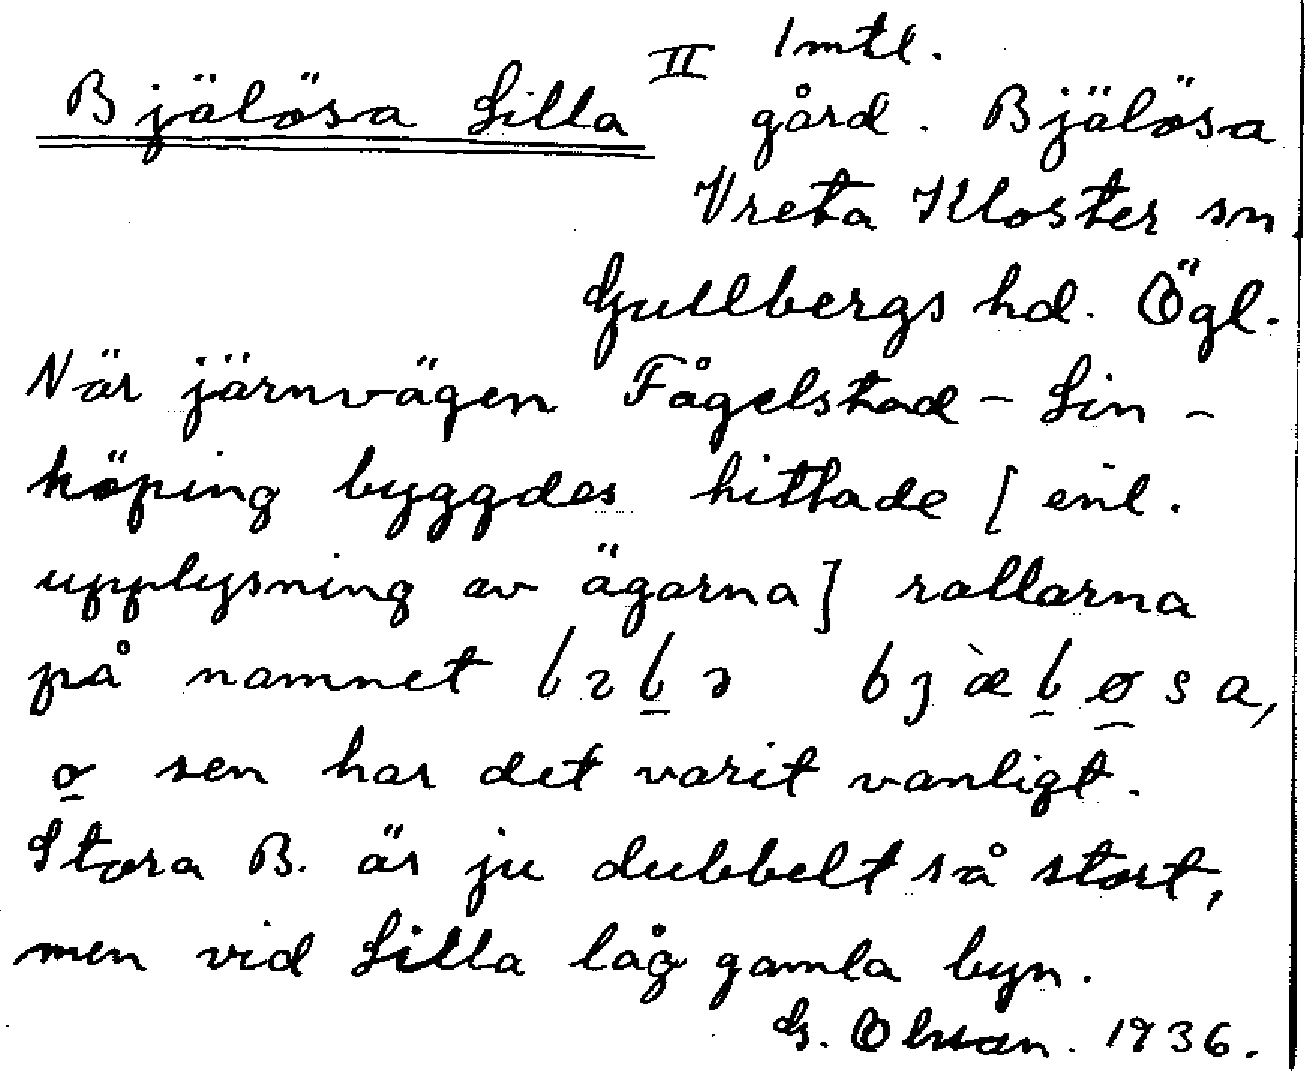 Bjälösa Lilla II 1 mtl.
gård. Bjälösa
Vreta Kloster sn
Gullbergs hd. Ögl.
När järnvägen Fågelstad - Lin-
köping byggdes hittade [enl.
upplysning av ägarna] rallarna
på namnet
o sen har det varit vanligt.
Stora B. är ju dubbelt så stort,
men vid Lilla låg gamla byn.
G. Olsson. 1936.